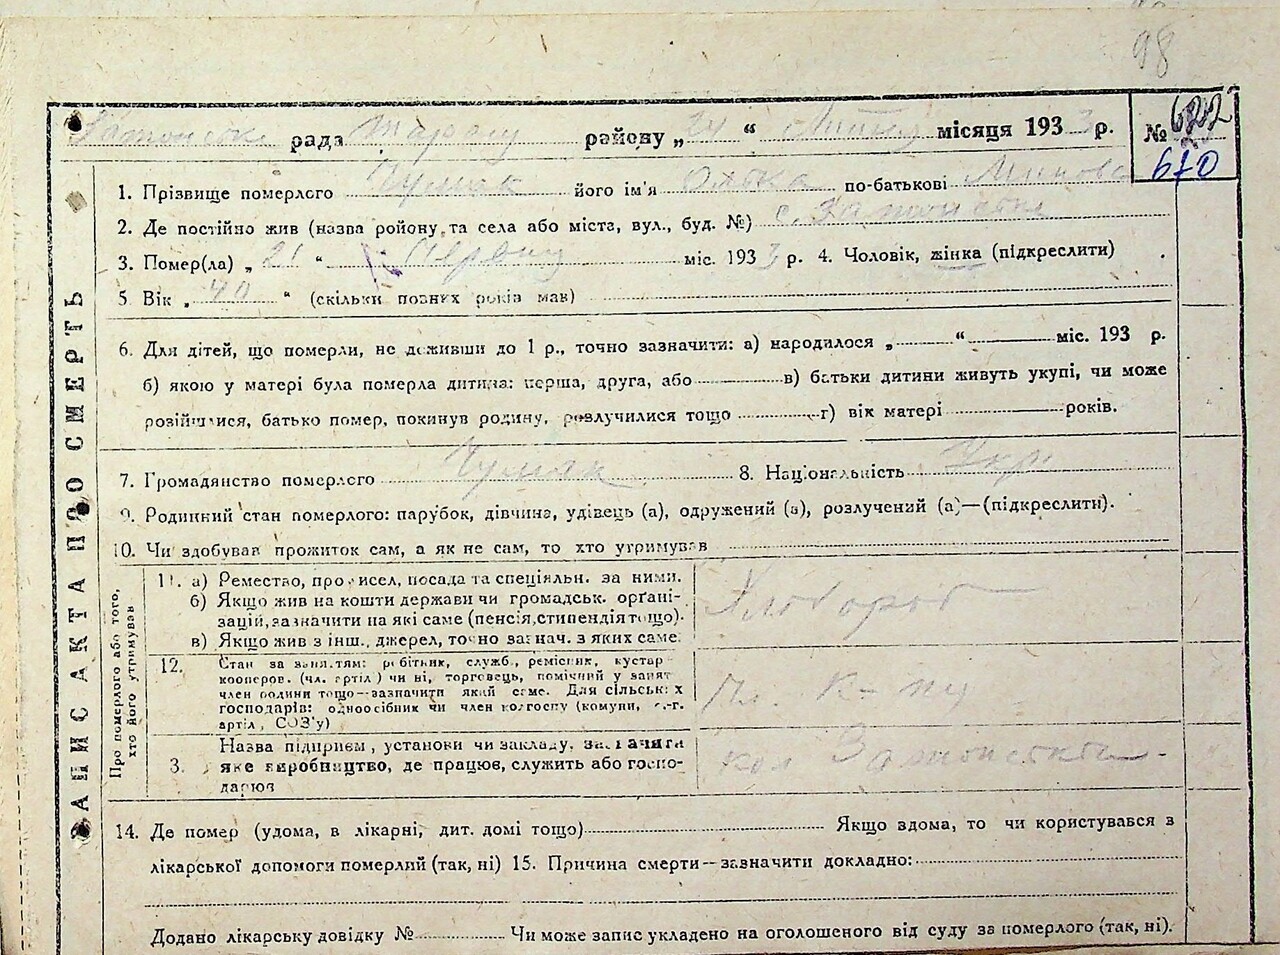 98
рада районy „24“ місяця 1933 р. № 622
670
1. Прізвище померлого Чумак його ім'я по-батькові
2. Де постійно жив (назва ройону та села або міста, вул., буд. №) с.
3. Помер(ла) „21“ Червня міс. 1933 р. 4. Чоловік, жінка (підкреслити)
5 Вік „40“ (скільки повних років мав)
6. Для дітей, що померли, не доживши до 1 р., точно зазначити: а) народилося „ “ міс. 193 р.
б) якою у матері була померла дитина: перша, друга, або в) батьки дитини живуть укупі, чи може
розійшлися, батько помер, покинув родину, розлучилися тощо г) вік матері років.
7. Громадянство померлого Чумак 8. Національність Укр
9. Родинкий стан померлого: парубок, дівчина, удівець (а), одружений (а), розлучений (а)—(підкреслити).
10. Чи здобував прожиток сам, а як не сам, то хто утримував
ЗАПИС АКТА ПРО СМЕРТЬ
Про померлого або того,
хто його утримував
11. а) Ремество, промисел, посада та спеціяльн. за ними.
б) Якщо жив на кошти держави чи громадськ. органі-
зацій, зазначити на які саме (пенсія, стипендія тощо).
в) Якщо жив з інш., джерел, точно зазнач. з яких саме.
Хлібороб
12. Стан за занятям: робітник, служб., ремісник, кустар
кооперов. (чл. артіл.) чи ні, торговець, помічний у занят
член родини тощо—зазначити який саме. Для сільських
господарів: одноосібник чи член колгоспу (комуни, с.-г.
артіл, СОЗ'у)
3. Назва підприєм., установи чи закладу, зазначити
яке виробництво, де працює, служить або госпо-
дарює
14. Де помер (удома, в лікарні, дит. домі тощо) Якщо вдома, то чи користувався з
лікарської допомоги померлий (так, ні) 15. Причина смерти—зазначити докладно:
Додано лікарську довідку № Чи може запис укладено на оголошеного від суду за померлого (так, ні).